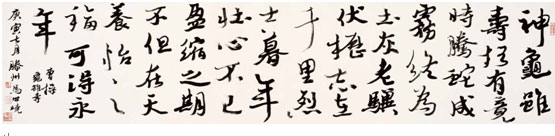 神龜雖
壽猶有竟
時騰蛇成
霧終為
土灰老驥
伏櫪志在
千里烈
士暮年
壯心不已
盈縮之期
不但在天
養怡之
福可得永
年
曹操
龜雖壽
庚寅七月滕州